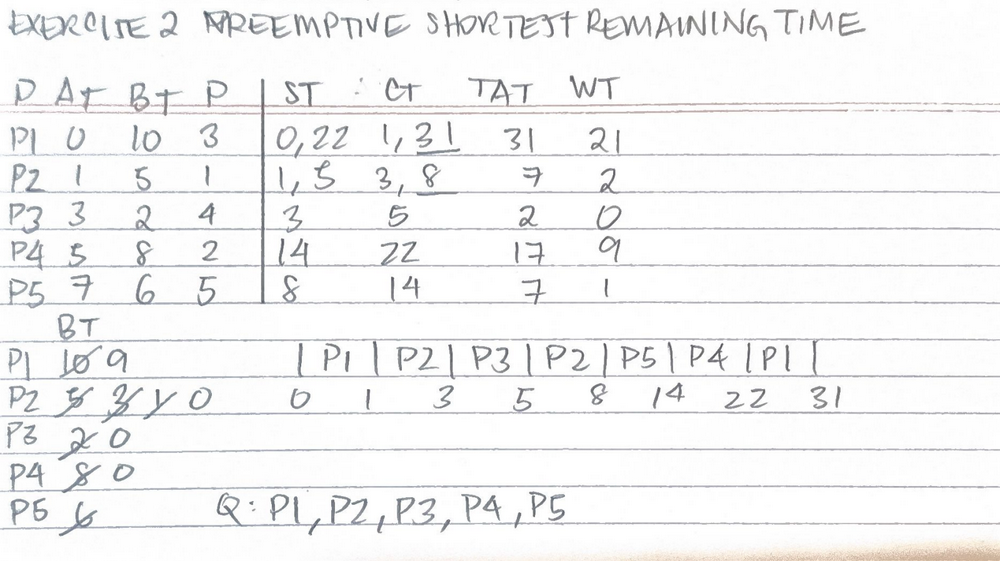 EXERCISE 2 PREEMPTIVE SHORTEST REMAINING TIME
P AT BT P ST CT TAT WT
P1 0 10 3 0,22 1,31 31 21
P2 1 5 1 1,5 3,8 7 2
P3 3 2 4 3 5 2 0
P4 5 8 2 14 22 17 9
P5 7 6 5 8 14 7 1
BT
P1 10 9 | P1 | P2 | P3 | P2 | P5 | P4 | P1 |
P2 5 3 1 0 0 1 3 5 8 14 22 31
P3 2 0
P4 8 0
P5 6 Q: P1, P2, P3, P4, P5